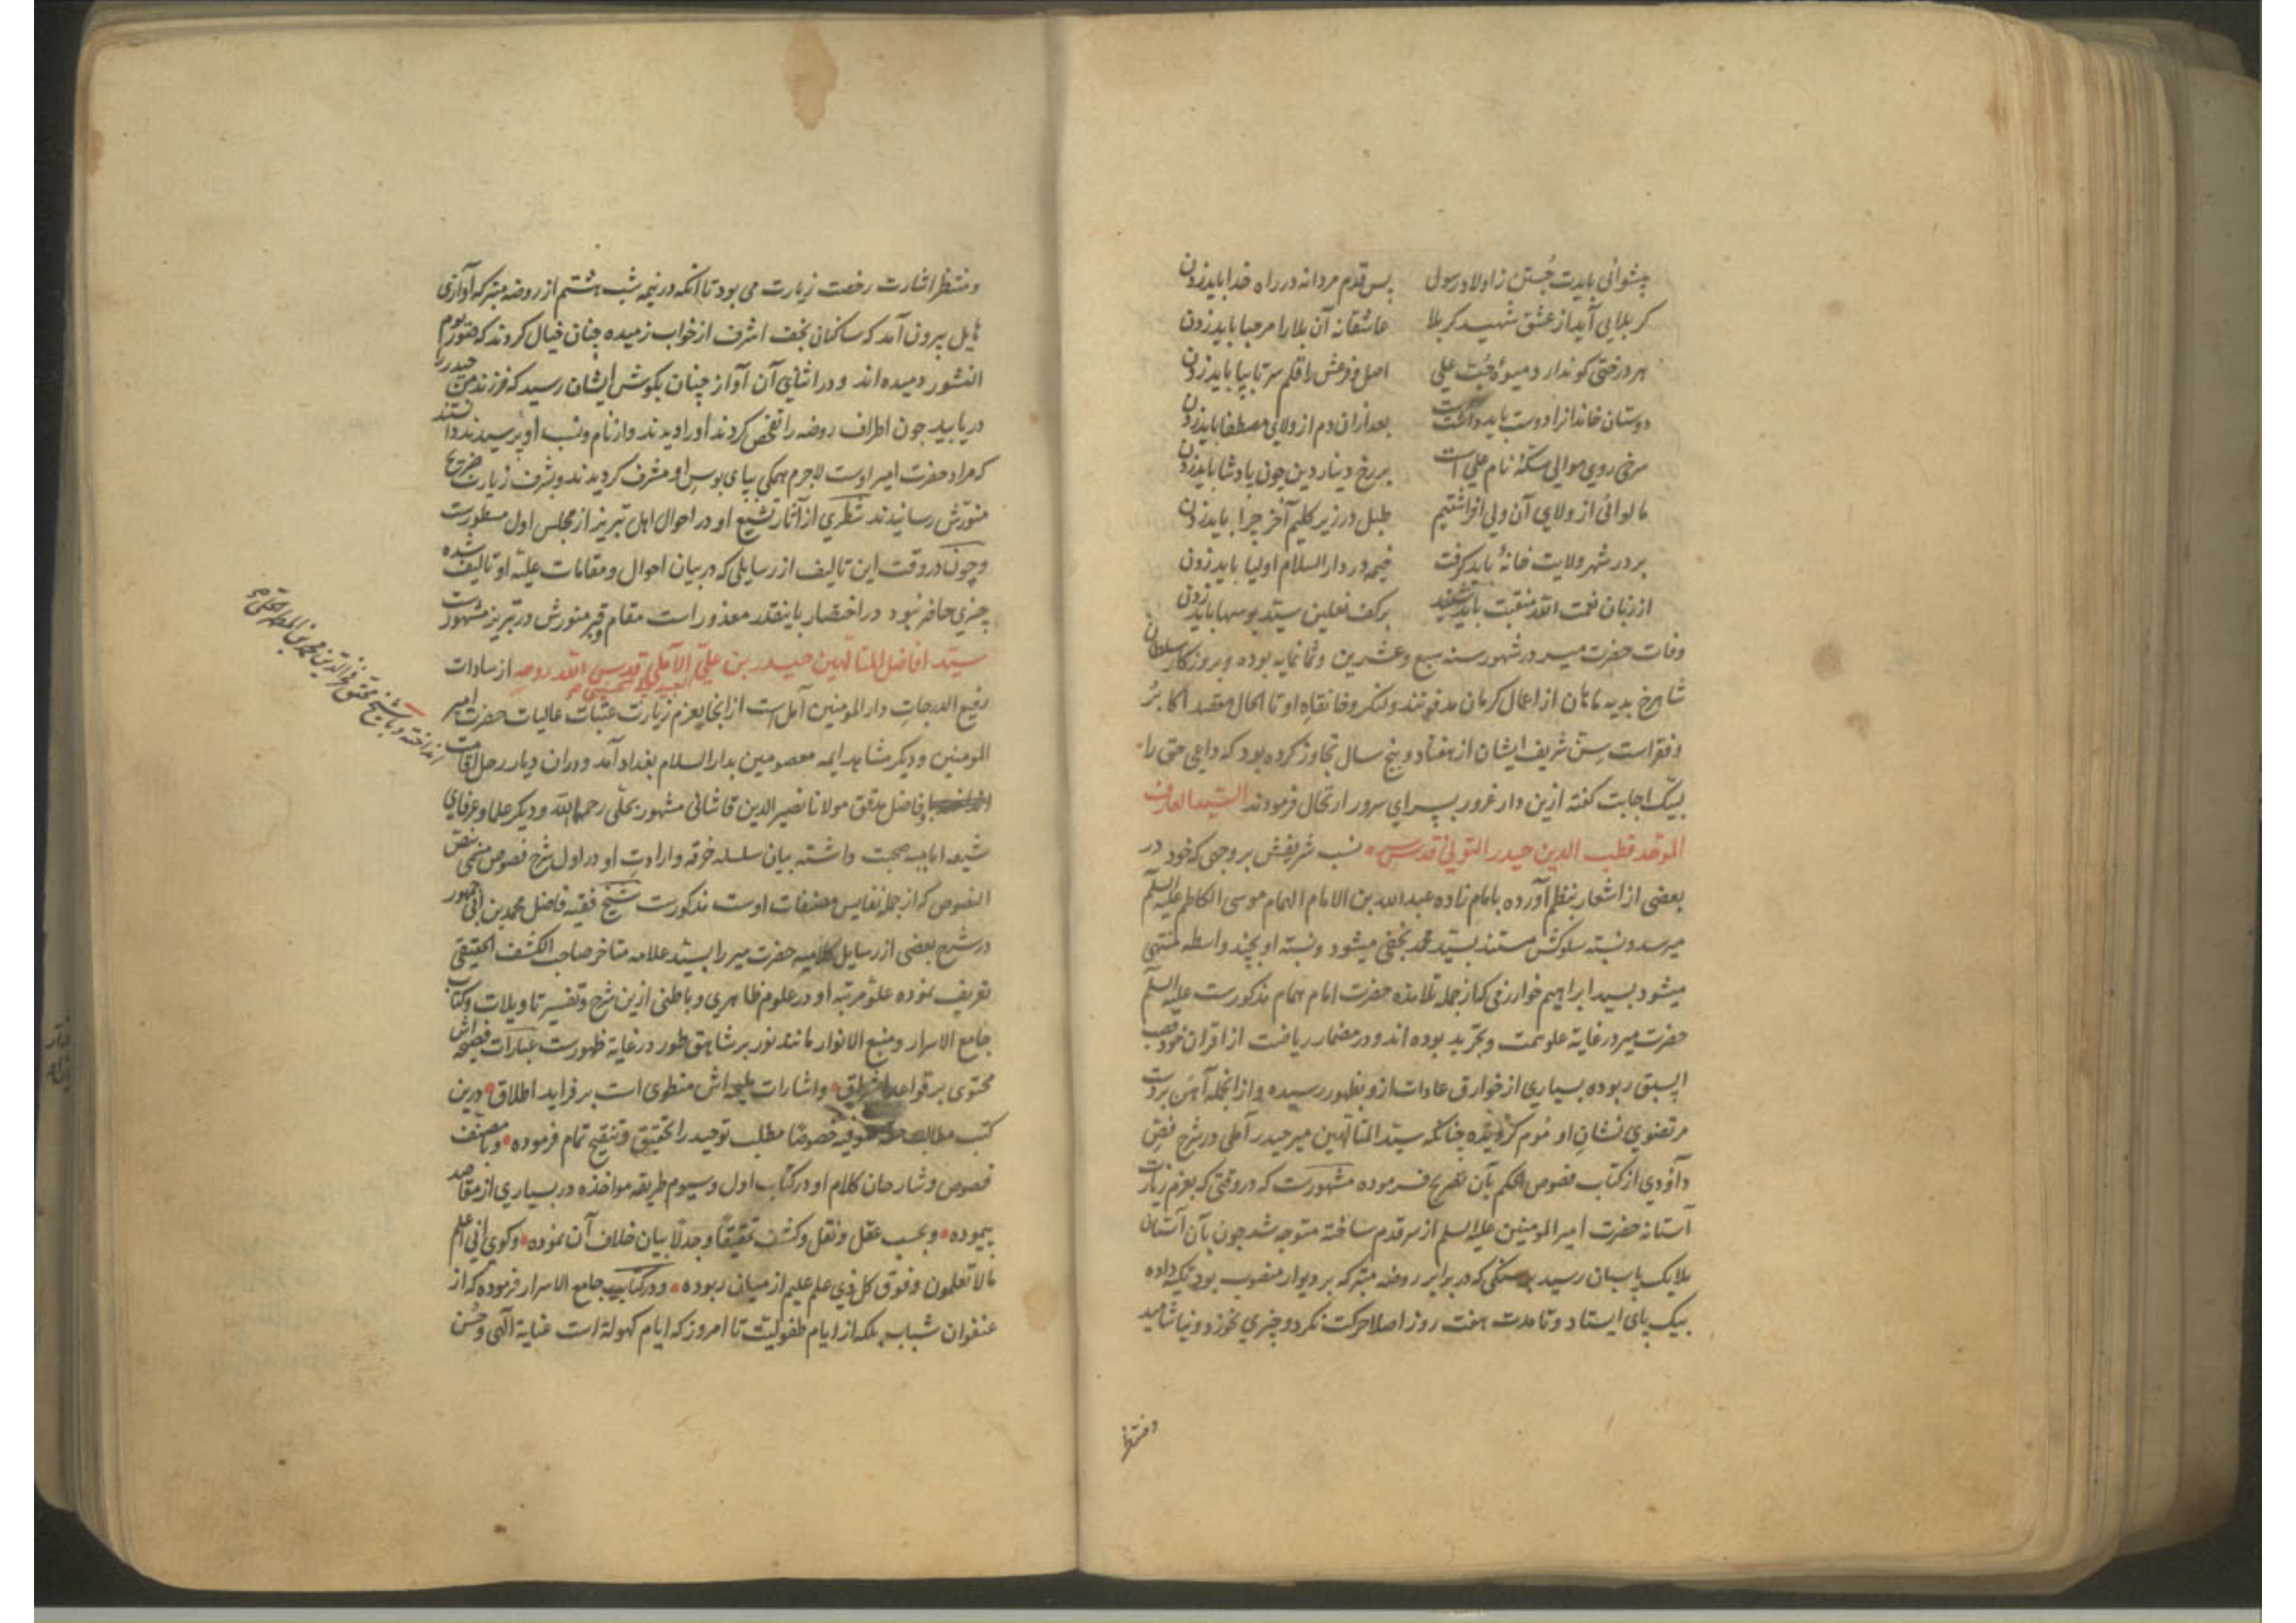 پیشوائی بایدت جُستن ز اولاد رسول پس قدم مردانه در راه خدا باید زدن
کربلایی آید از عشق شهید کربلا عاشقانه آن بلا را مرحبا باید زدن
هر درختی کو ندارد میوهٔ حُبّ علی اصل و فرعش را قلم سر تا بپا باید زدن
دوستان خاندانرا دوست باید داشت بعد ازان دم از ولای مصطفا باید زدن
سرخی روی موالی سکّهٔ نام علی است بر رخ دینار دین چون پادشا باید زدن
ما لوائی از ولای آن ولی افراشتیم طبل در زیر کلیم آخر چرا باید زدن
بر در شهر ولایت خانهٔ باید کرفت خیمه در دار السلام اولیا باید زدن
از زبان نعمت الله منقبت باید شنید بر کف نعلین سید بوسها باید زدن
وفات حضرت میر در شهور سنه سبع و عشرین و ثمانمایه بوده و بروزکار سلطان
شاهرخ بدیه ماهان از اعمال کرمان مدفونند و لنکر و خانقاه او تا الحال مقصد اکابر
و فقراست سن شریف ایشان از هفتاد و پنج سال تجاوز کرده بود که داعی حق را
لبیک اجابت کفته ازین دار غرور بسرای سرور ارتحال فرمودند السید العارف
الموحد قطب الدین حیدر التونی قدس سره نسب شریفش بر وجهی که خود در
بعضی از اشعار بنظم آورده بامام زاده عبد الله بن الامام الهمام موسی الکاظم علیه السلم
میرسد و نسبة سلوکش مستند بسید محمد نجفی میشود و نسبة او بچند واسطه منتهی
میشود بسید ابراهیم خوارزمی که از جمله تلامذه حضرت امام همام مذکورست علیه السلم
حضرت میر در غایة علو همت و تجرید بوده اند و در مضمار ریاضت از اقران خود قصب
السبق ربوده بسیاری از خوارق عادات ازو بظهور رسیده و از انجمله آهن بر دست
مرتضوی نشان او موم کردیده چنانکه سید المتالهین میر حیدر آملی در شرح فص
داودی از کتاب فصوص الحکم بآن تصریح فرموده مشهورست که در وقتی که بعزم زیارت
آستانه حضرت امیر المومنین علیه السلم از سر قدم ساخته متوجه شد چون بآن آستان
ملایک پاسبان رسید بر سنکی که در برابر روضه متبرکه بر دیوار منصوب بود تکیه داده
بیک پای ایستاد و تا مدت هفت روز اصلا حرکت نکرد و چیزی نخورد و نیاشامید
و منتظر
و منتظر اشارت رخصت زیارت می بود تا انکه در نیمه شب هشتم از روضه متبرکه آوازی
هایل بیرون آمد که ساکنان نجف اشرف از خواب رمیده چنان خیال کردند که صور یوم
النشور دمیده اند و در اثنای آن آواز چنان بکوش ایشان رسید که فرزند من حیدر را
دریابید چون اطراف روضه را تفحص کردند او را دیدند و از نام و نسب او پرسیدند دانستند
که مراد حضرت امیر اوست لاجرم همکی بپای بوس او مشرف کردیدند و بشرف زیارت ضریح
منورش رسانیدند شطری از آثار تشیع او در احوال اهل تبریز از مجلس اول مسطورست
و چون در وقت این تالیف از رسایلی که در بیان احوال و مقامات علیه او تالیف شده
چیزی حاضر نبود در اختصار باینقدر معذور است مقام و قبر منورش در تبریز مشهورست
سید افاضل المتالهین حیدر بن علی العبیدلی الحسینی الآملی قدس الله روحه از سادات
رفیع الدرجات دار المومنین آمل است از انجا بعزم زیارت عتبات عالیات حضرت امیر
المومنین و دیکر مشاهد ایمه معصومین بدار السلام بغداد آمد و دران دیار رحل اقامت
انداخته و با شیخ محقق فخر الدین محمد بن المطهر الحلی
با فاضل مدقق مولانا نصیر الدین قاشانی مشهور بحلی رحمهما الله و دیکر علما و عرفای
شیعه امامیه صحبت داشته بیان سلسله خرقه و ارادت او در اول شرح فصوص مسمی بنص
النصوص که از جمله نفایس مصنفات اوست مذکورست شیخ فقیه فاضل محمد بن ابی جمهور
در شرح بعضی از رسایل کلامیه حضرت میر را بسید علامه متاخر صاحب الکشف الحقیقی
تعریف نموده علو مرتبه او در علوم ظاهری و باطنی ازین شرح و تفسیر تاویلات و کتاب
جامع الاسرار و منبع الانوار مانند نور بر شاهق طور در غایة ظهورست عبارات فصیحه اش
محتوی بر قواعد اشراق و اشارات ملیحه اش منطوی است بر فراید اطلاق درین
کتب مطالب صوفیه خصوصا مطلب توحید را تحقیق و تنقیح تمام فرموده و با مصنف
فصوص و شارحان کلام او در کتاب اول و سیوم طریقه مواخذه در بسیاری از مقاصد
پیموده و بحسب عقل و نقل و کشف تحقیقا و جدلا بیان خلاف آن نموده و کوی انی اعلم
مالا تعلمون و فوق کل ذی علم علیم از میان ربوده و در کتاب جامع الاسرار فرموده که از
عنفوان شباب بلکه از ایام طفولیت تا امروز که ایام کهولة است عنایة الهی و حسن